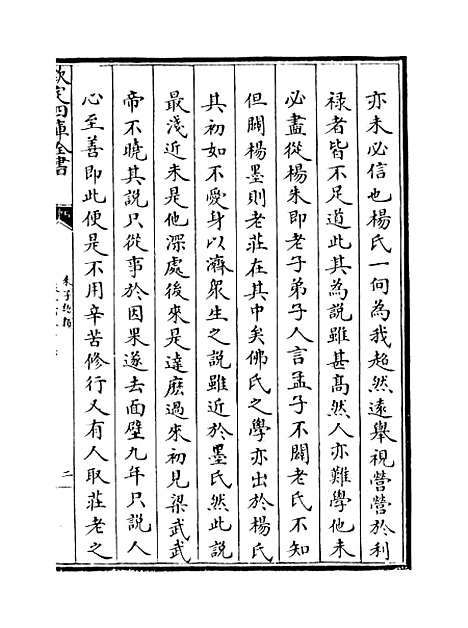 亦未必信也楊氏一向為我超然遠舉視營營於利
祿者皆不足道此其為說雖甚髙然人亦難學他未
必盡從楊朱即老子弟子人言孟子不闢老氏不知
但闢楊墨則老莊在其中矣佛氏之學亦出於楊氏
其初如不愛身以濟衆生之說雖近於墨氏然此說
最淺近未是他深處後來是達麽過來初見梁武武
帝不曉其說只從事於因果遂去面壁九年只說人
心至善即此便是不用辛苦修行又有人取莊老之
欽定四庫全書
朱子
二